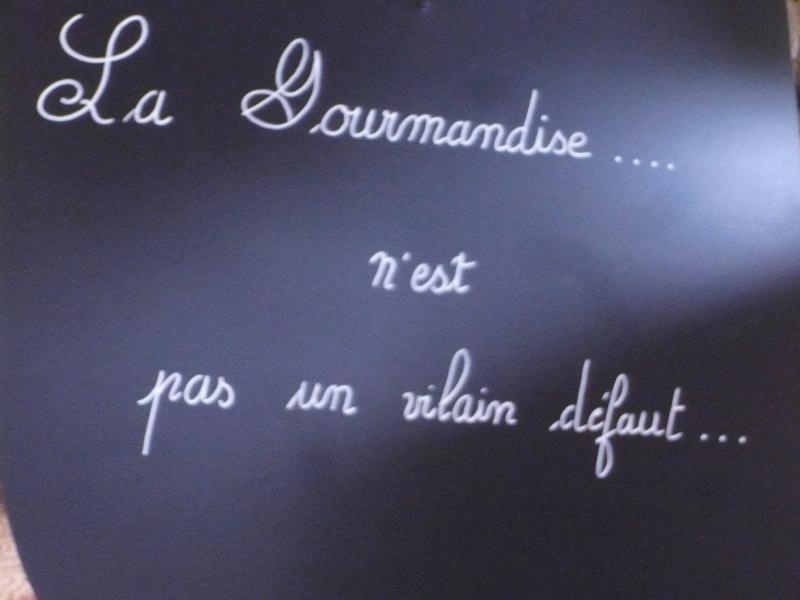 La Gourmandise....
n'est
pas un vilain défaut...